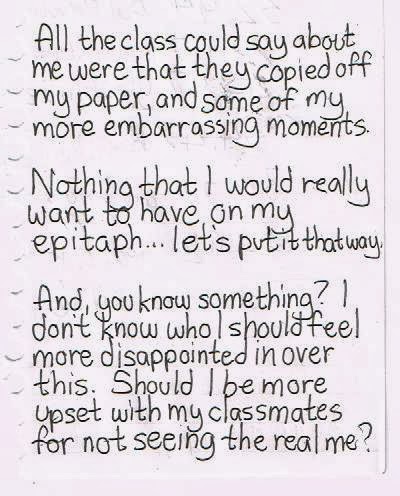 All the class could say about
me were that they copied off
my paper, and some of my
more embarrassing moments.
Nothing that I would really
want to have on my
epitaph... let's put it that way.
And, you know something? I
don't know who I should feel
more disappointed in over
this. Should I be more
upset with my classmates
for not seeing the real me?